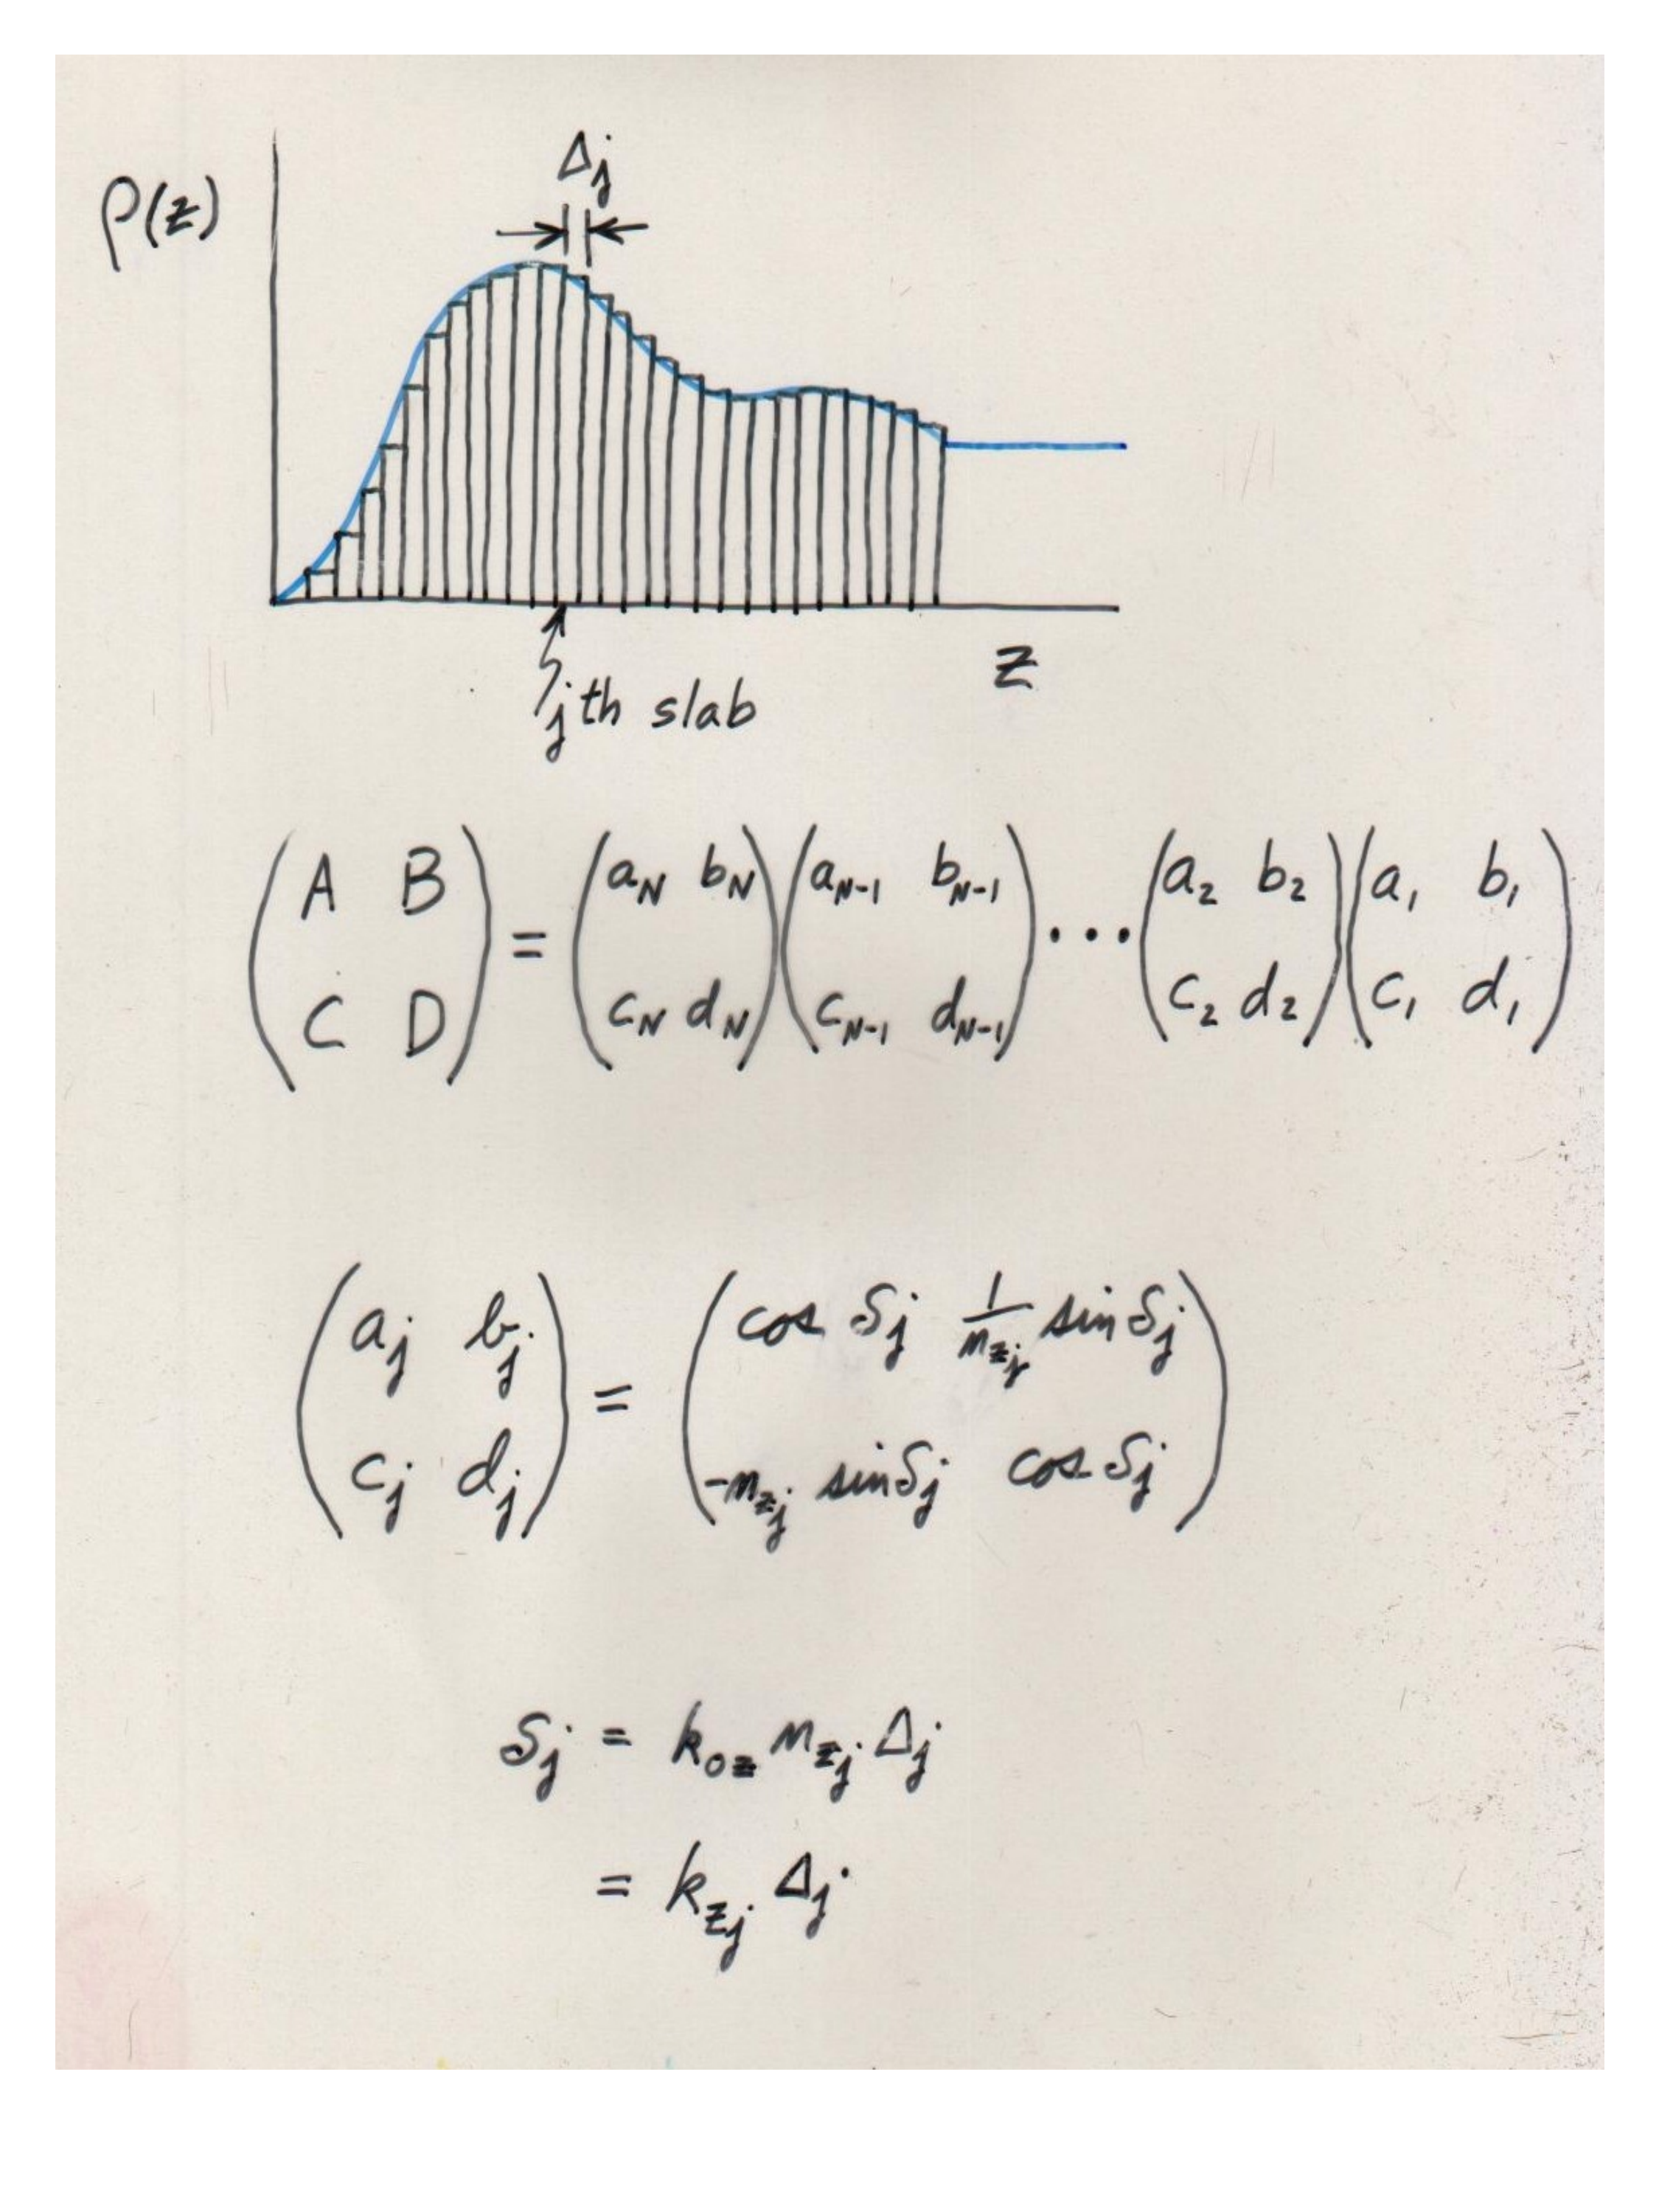 Δj
ρ(z)
z
jth slab
(A B
C D) = (aN bN
cN dN)(aN-1 bN-1
cN-1 dN-1) ⋯ (a2 b2
c2 d2)(a1 b1
c1 d1)
(aj bj
cj dj) = (cos δj 1/nzj sin δj
-nzj sin δj cos δj)
δj = k0z nzj Δj
= kzj Δj